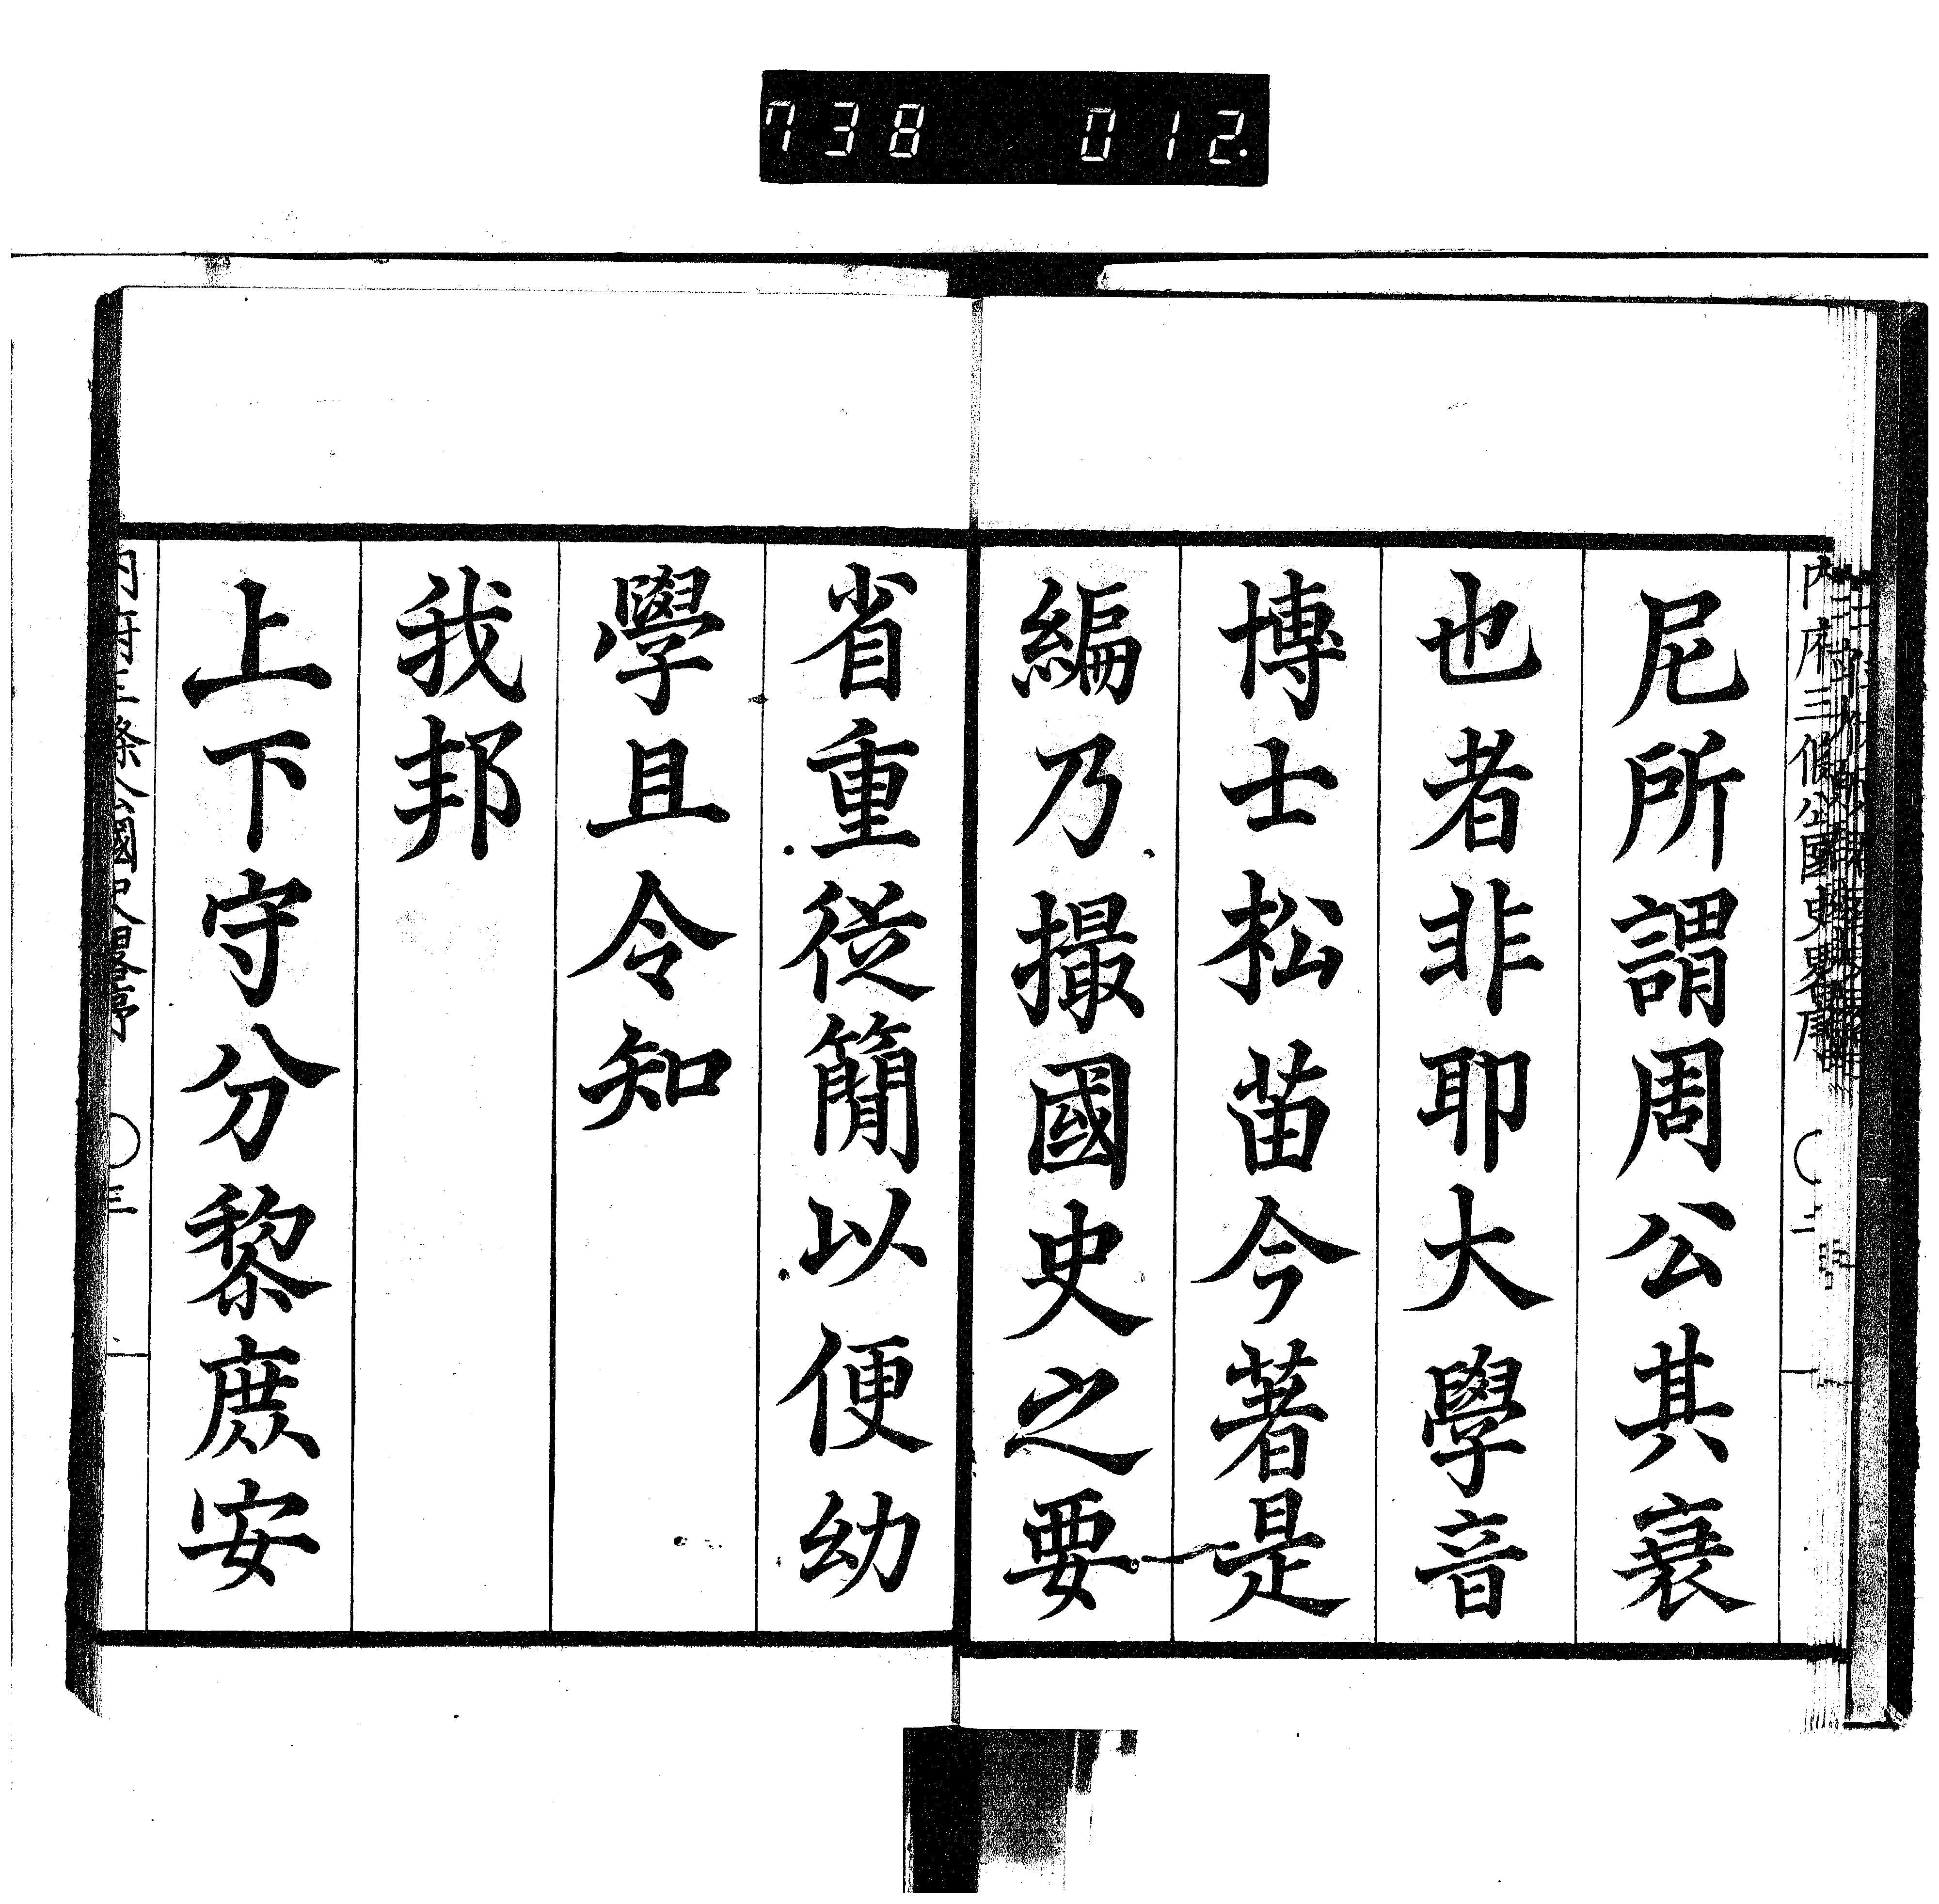 738 012.
尼所謂周公其衰
也者非耶大學音
博士松苗今著是
編乃撮國史之要
省重従簡以便幼
學且令知
我邦
上下守分黎庶安
内府三條公國史畧序 〇二
内府三條公國史畧序 〇三